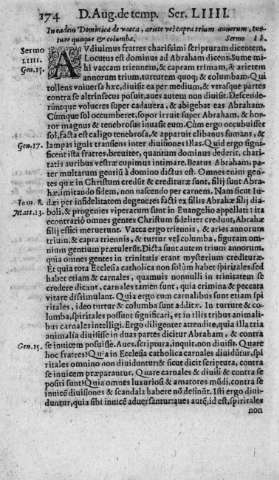 174 D. Aug. de temp. Ser. LIIII.
In eadem Dominica de vacca, ariete vel capra trium annorum, tur-
ture quoque & columba. Sermo
Sermo LIIII. AVdiuimus fratres charissimi scripturam dicentem,
Gen. 15. Locutus est dominus ad Abraham dicens: Sume mi
hi vaccam triennem, & capram trimam, & arietem
annorum trium, turturem quoq; & columbam. Qui
tollens vniuersa hæc, diuisit ea per medium, & vtrasq; partes
contra se altrinsecus posuit, aues autem non diuisit. Descende-
rúntque volucres super cadauera, & abigebat eas Abraham.
Cumque sol occumberet, sopor irruit super Abraham, & hor-
ror magnus & tenebrosus inuasit eum. Cùm ergo occubuisset
sol, facta est caligo tenebrosa, & apparuit clibanus fumans, &
Gen. 17. lampas ignis transiens inter diuisiones illas. Quid ergo signifi-
cent ista fratres, breuiter, quantum dominus dederit, chari-
tatis auribus vestræ cupimus intimare. Beatus Abraham pa-
ter multarum gentium à domino dictus est. Omnes enim gen-
tes quæ in Christum credunt & credituræ sunt, filij sunt Abra-
hæ, imitando fidem, non nascendo per carnem. Nam sicut Iu-
Ioan. 8. dæi per infidelitatem degeneres facti ex filiis Abrahæ filij dia-
Matt. 13. boli, & progenies viperarum sunt in Euangelio appellati: ita
è contrario omnes gentes Christum fideliter credunt, Abrahæ
filij effici meruerunt. Vacca ergo triennis, & aries annorum
trium, & capra triennis, & turtur vel columba, figuram om-
nium gentium prætulerunt. Dicta sunt autem trium annorum,
quia omnes gentes in trinitatis erant mysterium credituræ.
Et quia tota Ecclesia catholica non solùm habet spiritales sed
habet etiam & carnales, quamuis nonnulli in trinitatem se
credere dicant, carnales tamen sunt, quia crimina & peccata
vitare dissimulant. Quia ergo cum carnalibus sunt etiam spi-
ritales, ideo turtur & columba sunt additæ. In turture & co-
lumba, spiritales possunt significari, et in illis tribus animali-
bus carnales intelligi. Ergo diligenter attendite, quia illa tria
animalia diuisisse in duas partes dicitur Abraham, & contra
Gen. 15. se inuicem posuisse. Aues, scriptura inquit, non diuisit. Quare
hoc fratres? Quia in Ecclesia catholica carnales diuiduntur, spi-
ritales omnino non diuiduntur: & sicut dicit scriptura, contra
se inuicem præparantur. Quare carnales & diuisi & contra se
positi sunt? Quia omnes luxuriosi & amatores mundi, contra se
inuicem diuisiones & scandala habere nō desinūt. Isti ergo diui-
duntur, quia sibi inuicē aduersantur: aues autē, id est, spiritales
non